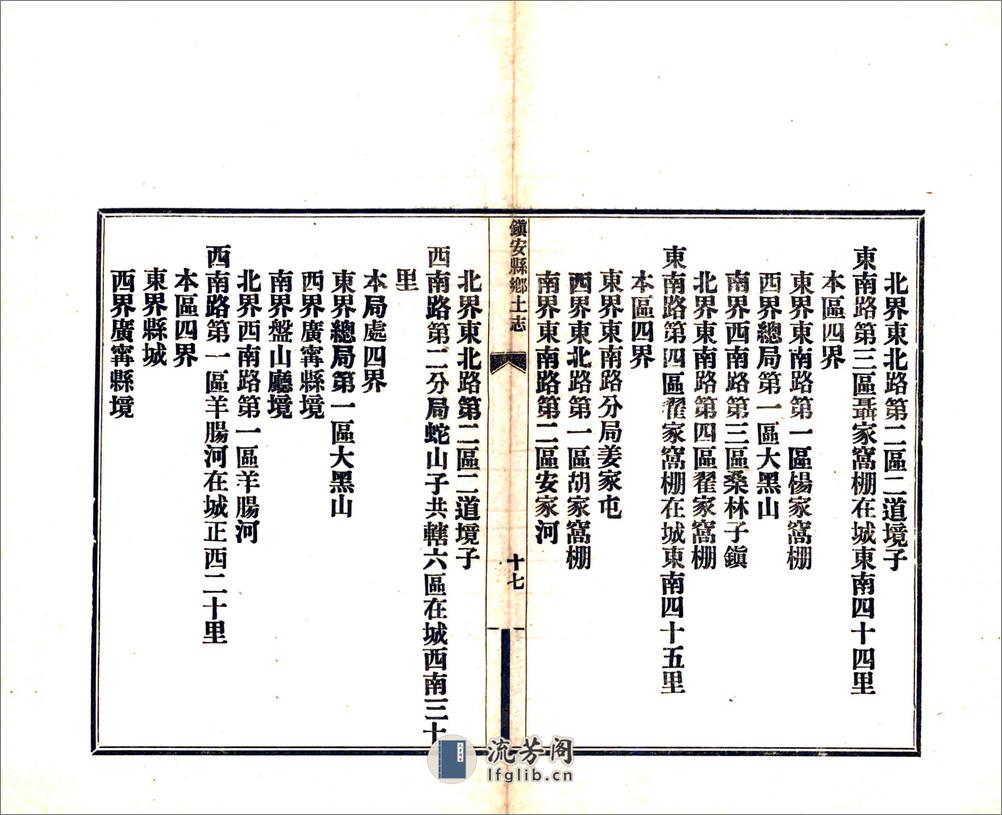 北界東北路第二區二道境子
東南路第三區聶家窩棚在城東南四十四里
本區四界
東界東南路第一區楊家窩棚
西界總局第一區大黑山
南界西南路第三區桑林子鎭
北界東南路第四區翟家窩棚
東南路第四區翟家窩棚在城東南四十五里
本區四界
東界東南路分局姜家屯
西界東北路第一區胡家窩棚
南界東南路第二區安家河
鎭安縣鄉土志
十七
北界東北路第二區二道境子
西南路第二分局蛇山子共轄六區在城西南三十
里
本局處四界
東界總局第一區大黑山
西界廣甯縣境
南界盤山廳境
北界西南路第一區羊腸河
西南路第一區羊腸河在城正西二十里
本區四界
東界縣城
西界廣甯縣境
流芳阁
lfglib.cn